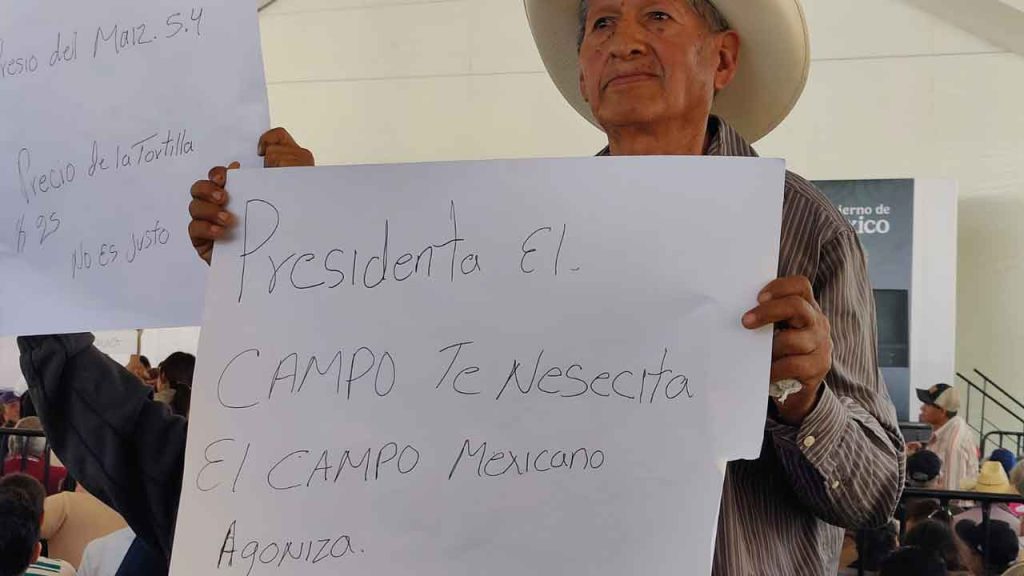 Presio del Maiz. 5.4
Precio de la Tortilla
$ 25
No Es Justo
Presidenta El.
CAMPO Te Nesecita
El CAMPO Mexicano
Agoniza.
ierno de
xico